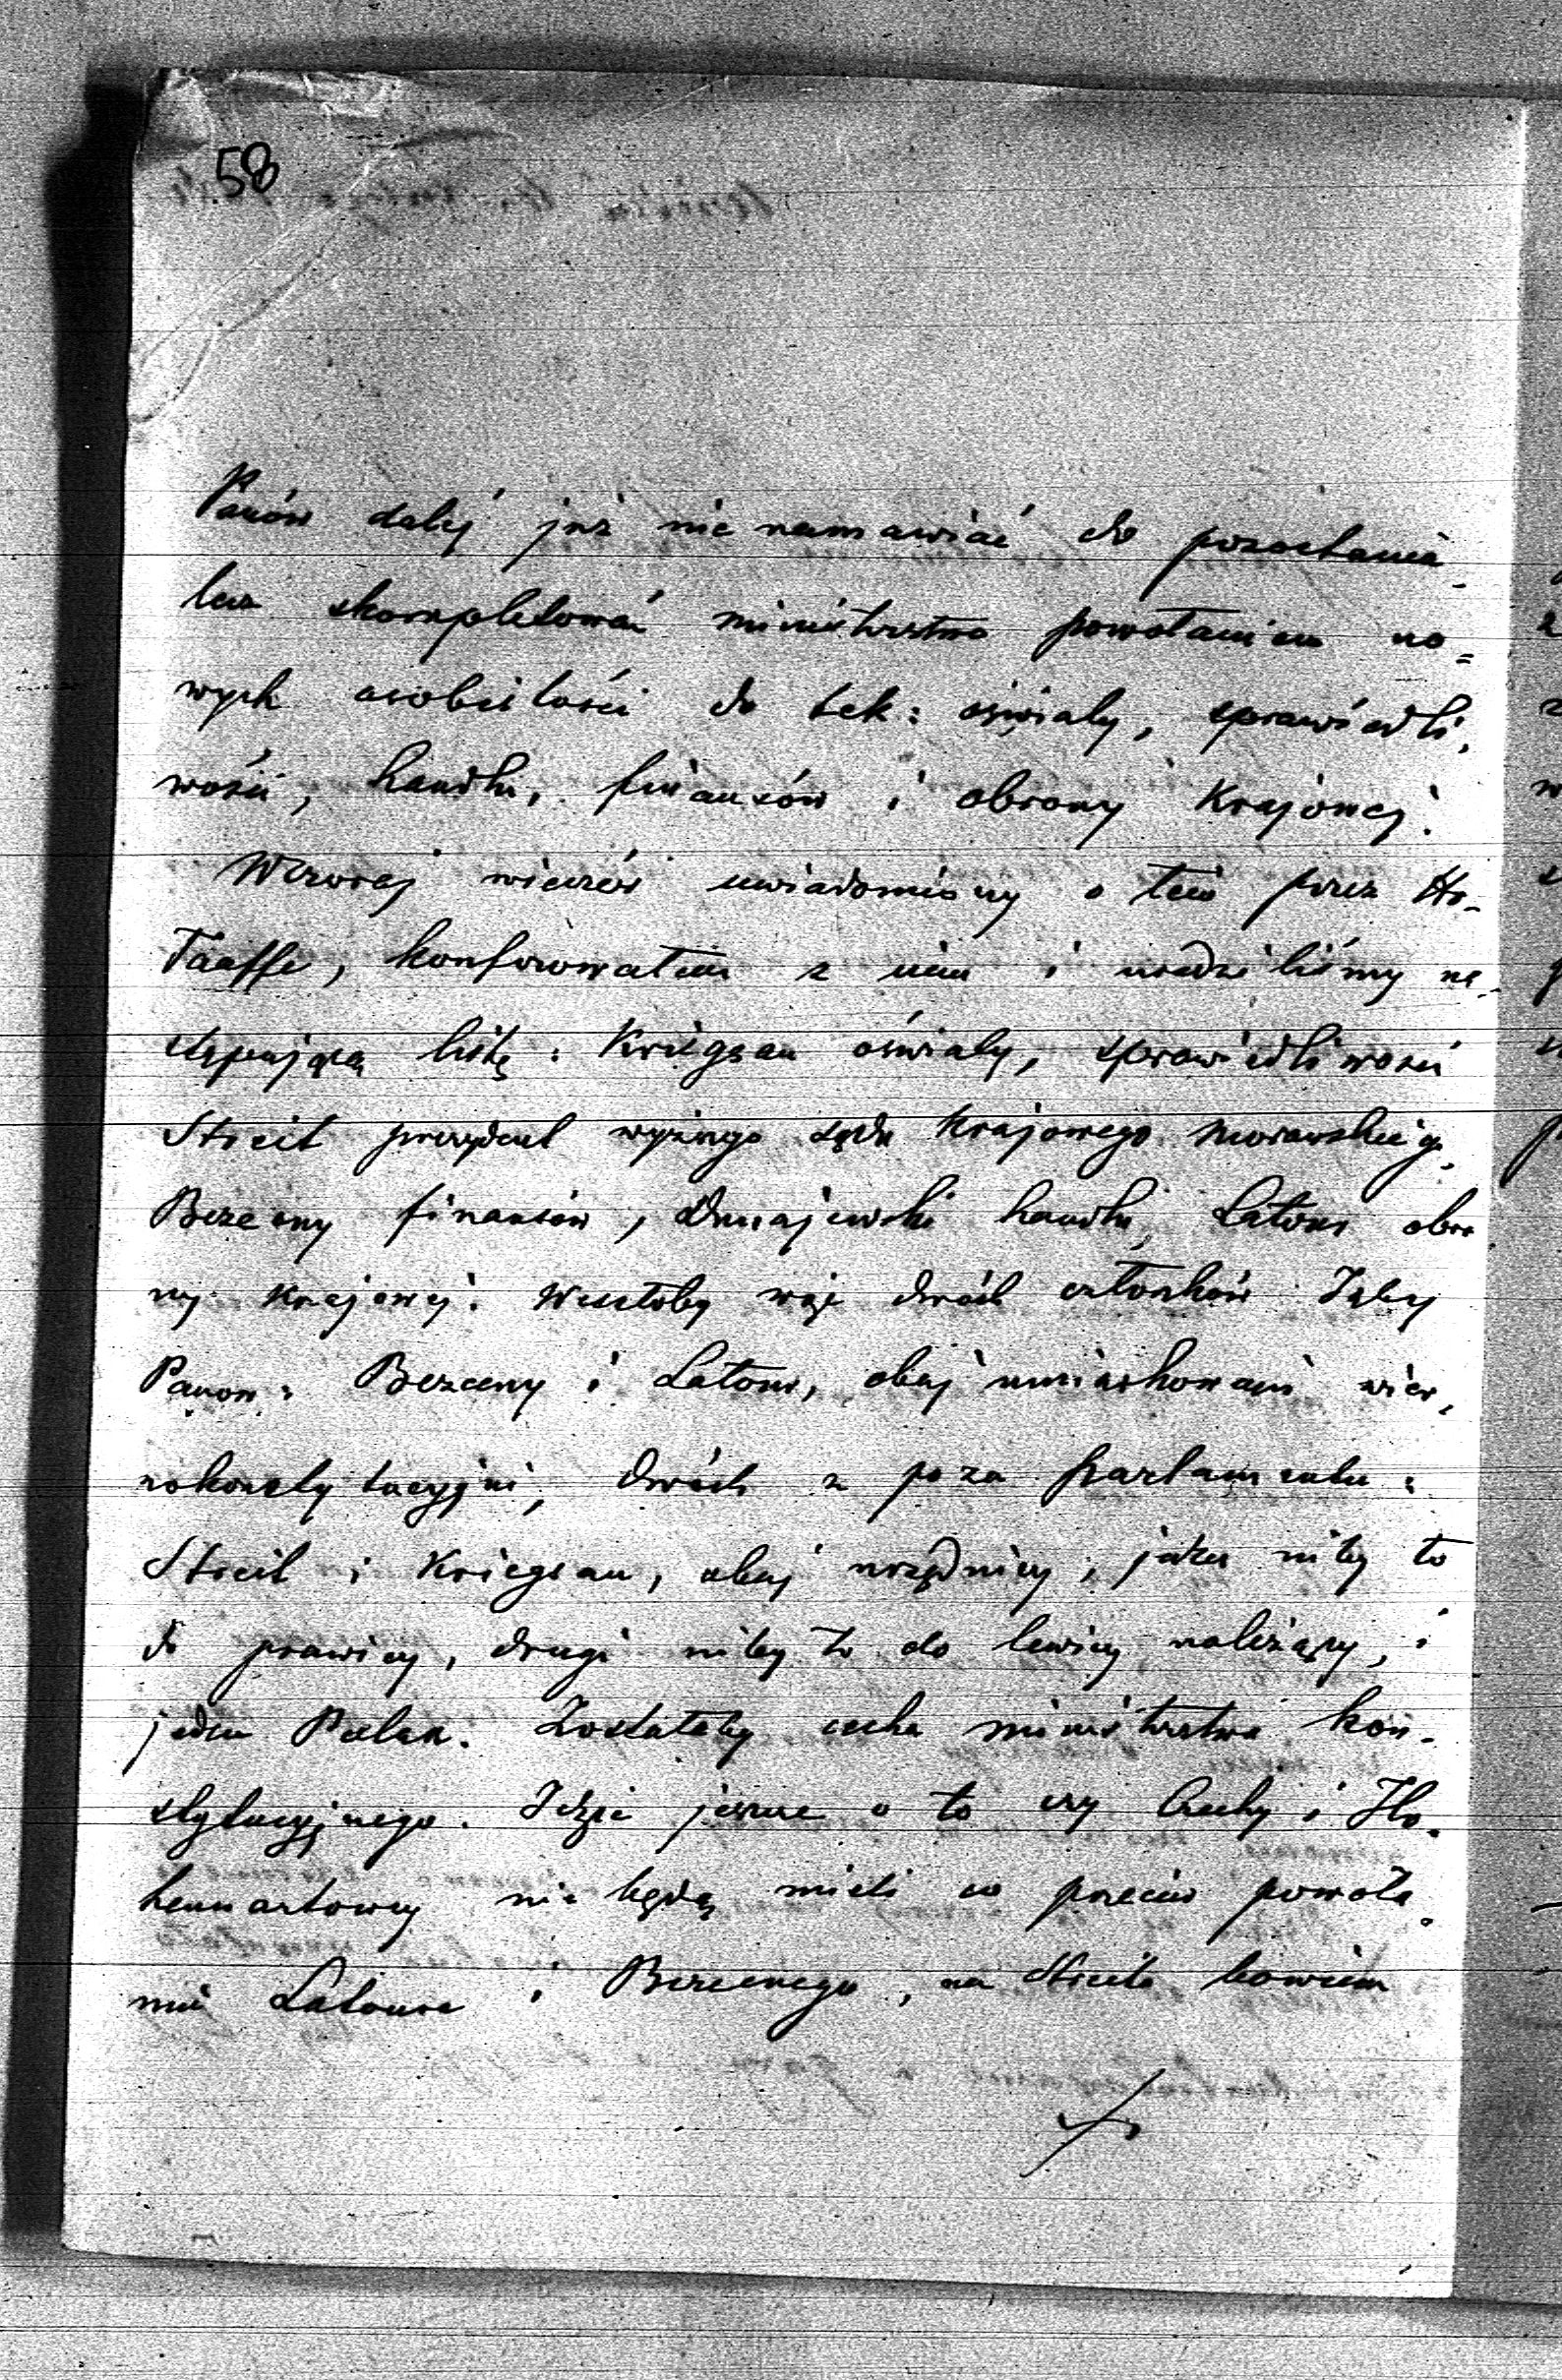 58
Panów dalej już nie namawiać do pozostania
lecz skompletować ministerstwo powołaniem no=
wych osobistości do tek: oświaty, sprawiedli-
wości, handlu, finansów i obrony Krajowej.
Wczoraj wieczór uwiadomiony o tem przez Hr.
Taaffe, konferowałem z nim i uradziliśmy na-
stępującą listę: Kriegsau oświaty, sprawiedliwości
Streit prezydent wyższego sądu Krajowego morawskiego,
Bezecny finansów, Dunajewski handlu, Latour obro
ny Krajowej. Weszłoby więc dwóch członków Izby
Panów: Bezecny i Latour, obaj umiarkowani wier-
nokonstytucyjni, dwóch z poza parlamentu:
Streit i Kriegsau, obaj urzędnicy, jeden niby to
do prawicy, drugi niby to do lewicy należący, i
jeden Polak. Zostałaby cecha ministerstwa kon-
stytucyjnego. Idzie jeszcze o to czy Czechy i Ho-
henwartowcy nie będą mieli co przeciw powoła-
niu Latoura i Bezecnego, na Streita bowiem